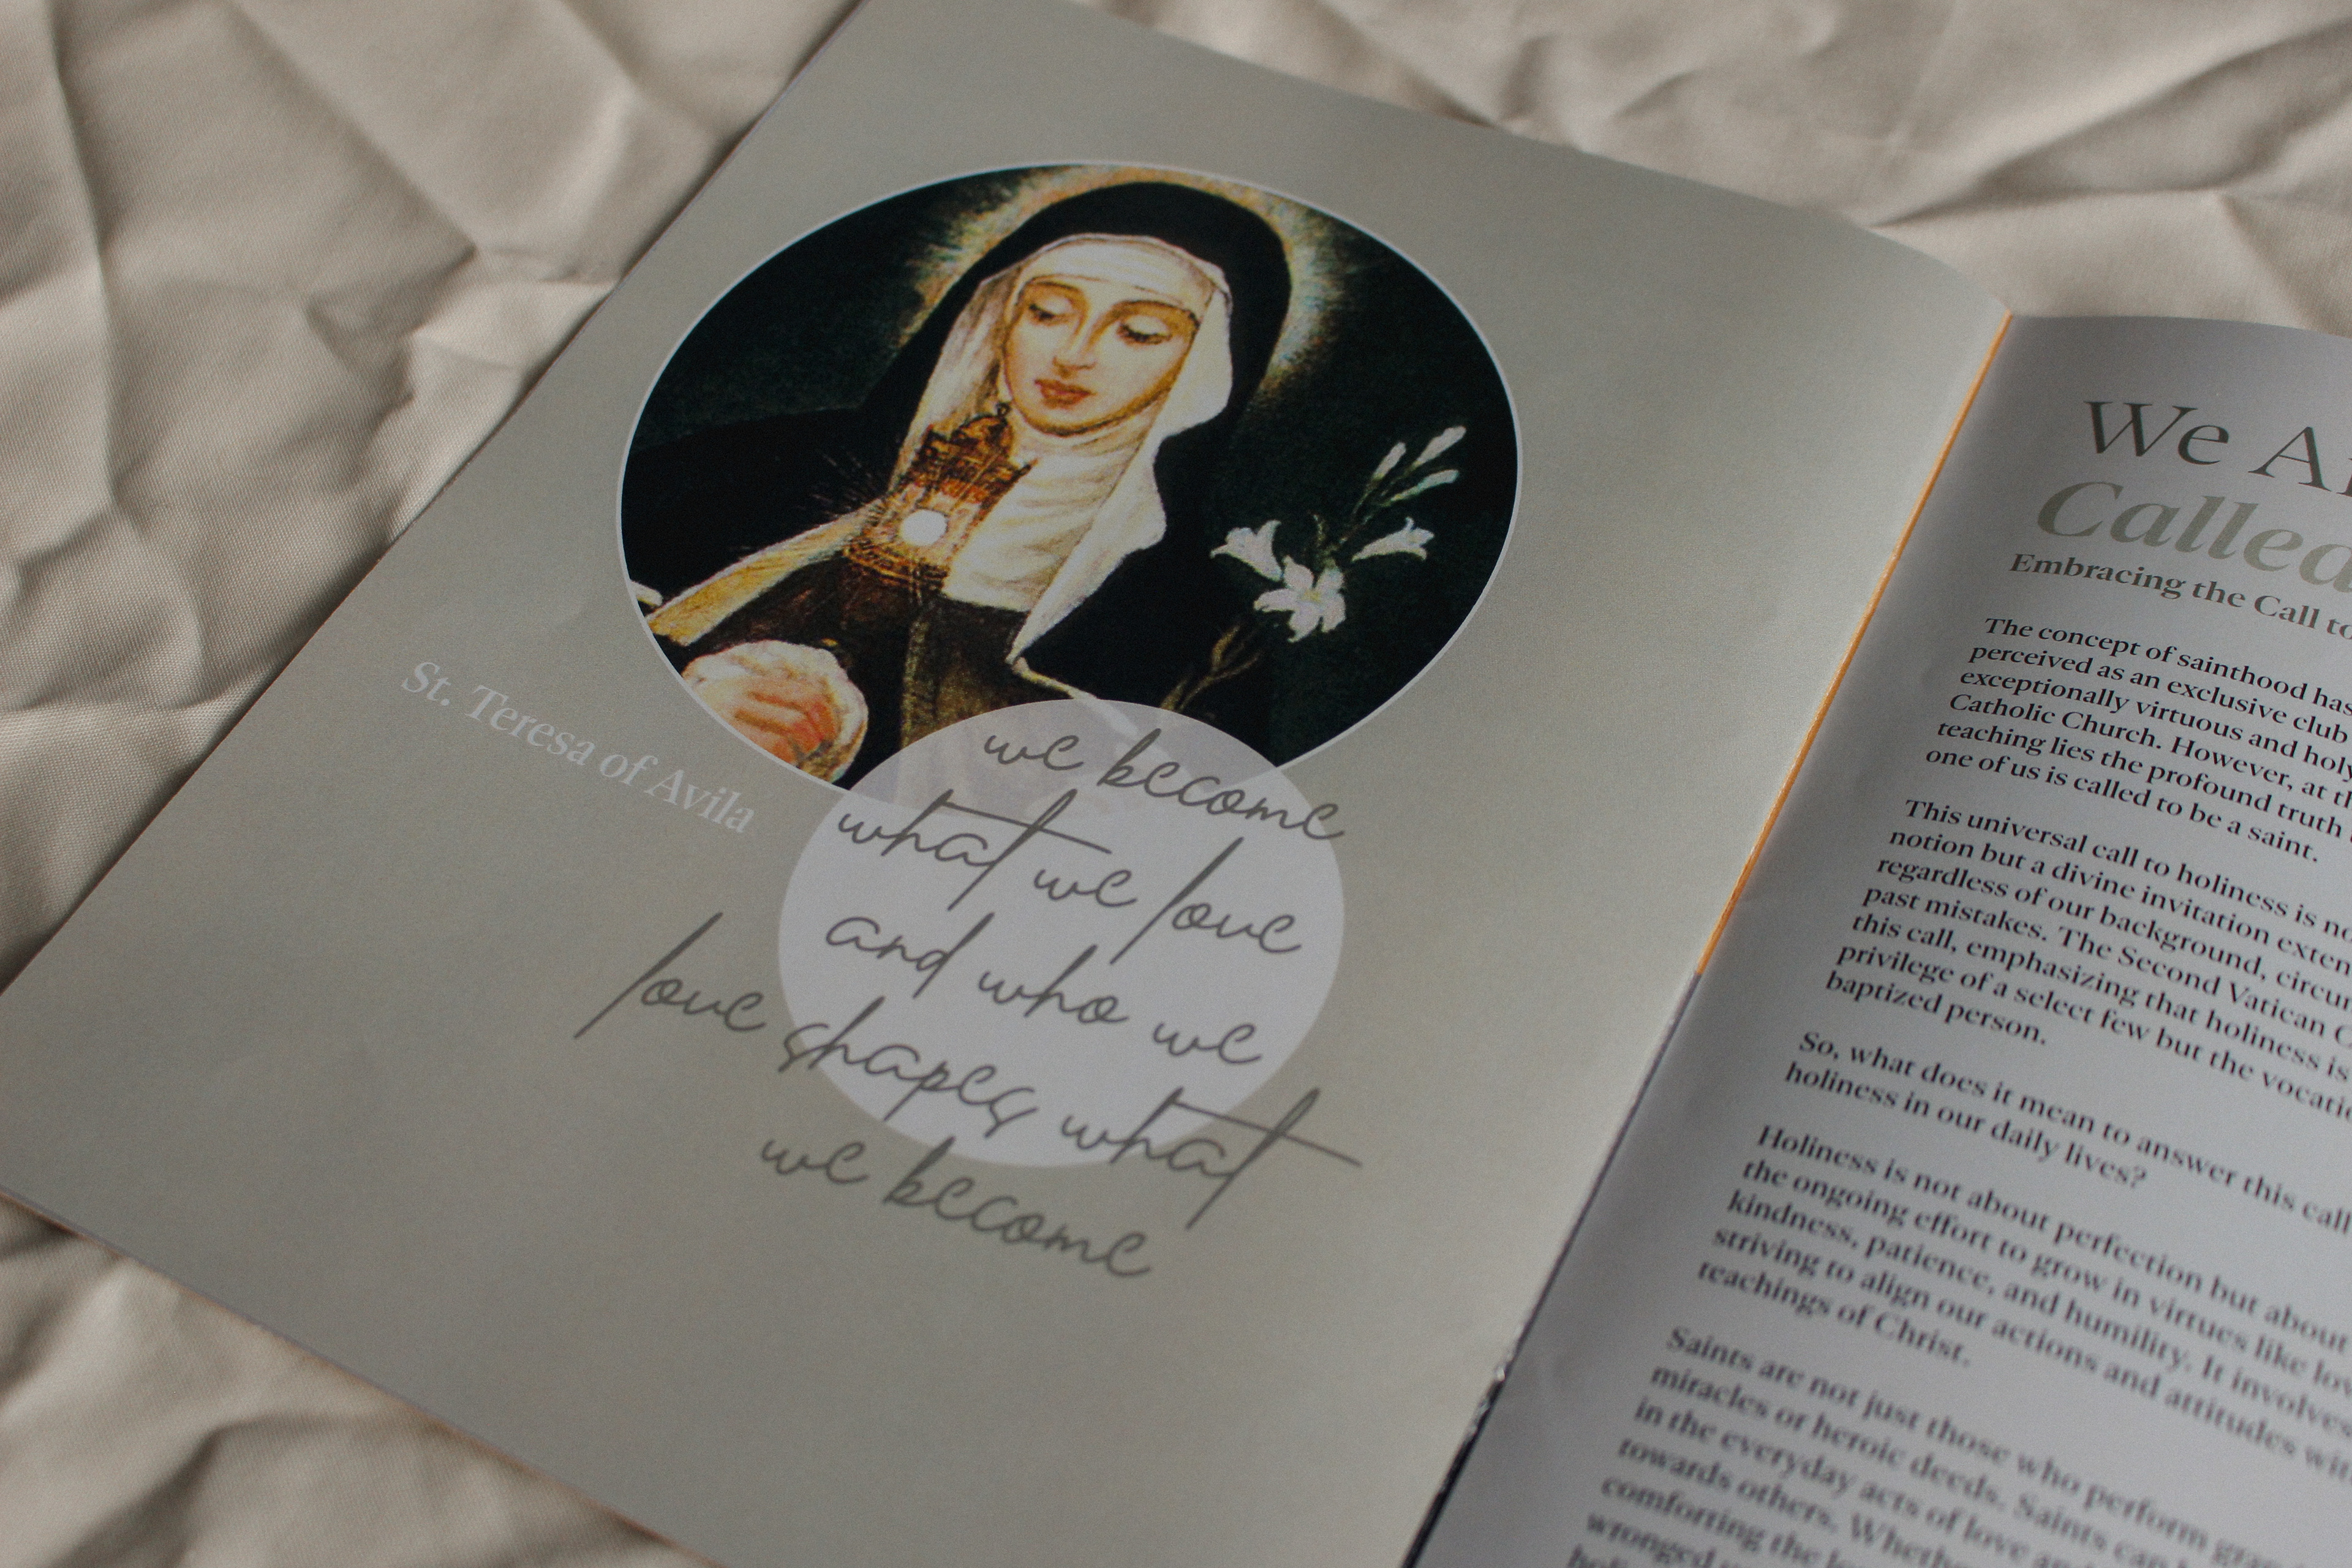 St. Teresa of Avila
we become
what we love
and who we
love shapes what
we become
We
Called
Embracing the Call to
The concept of sainthood has
perceived as an exclusive club
exceptionally virtuous and holy
Catholic Church. However, at
teaching lies the profound truth
one of us is called to be a saint.
This universal call to holiness is
notion but a divine invitation
regardless of our background,
past mistakes. The Second Vatican
this call, emphasizing that holiness is
privilege of a select few but the
baptized person.
So, what does it mean to answer this call
holiness in our daily lives?
Holiness is not about perfection but about
the ongoing effort to grow in virtues like
kindness, patience, and humility. It involves
striving to align our actions and attitudes
teachings of Christ.
Saints are not just those who perform
miracles or heroic deeds. Saints
in the everyday acts of love
towards others.
comforting the
wronged